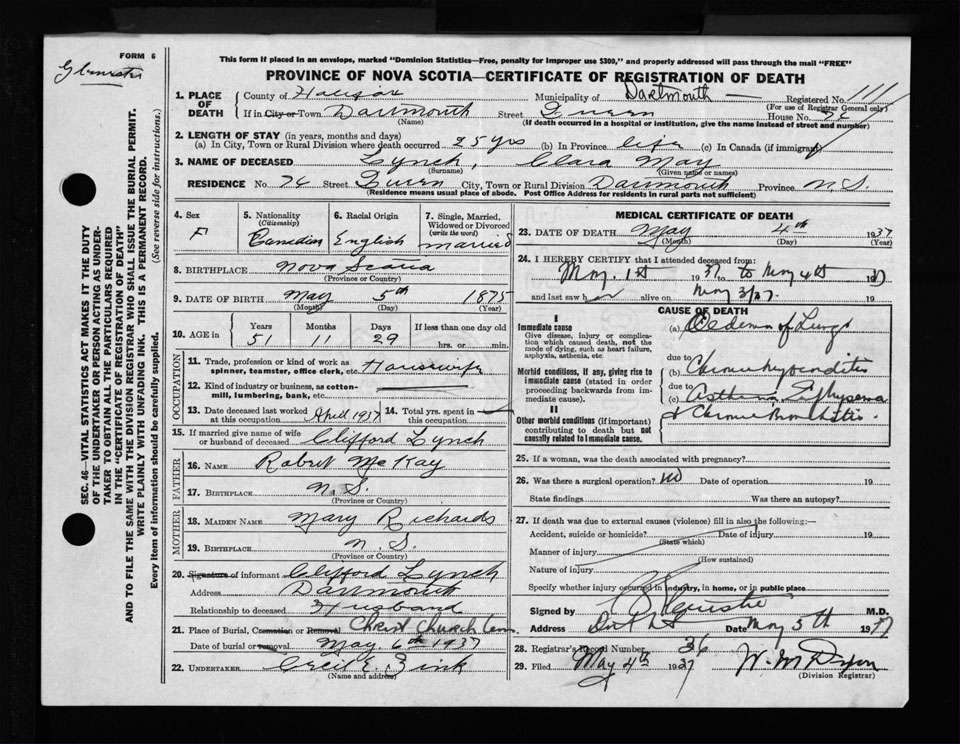 FORM 6
This form if placed in an envelope, marked "Dominion Statistics—Free, penalty for improper use $300," and properly addressed will pass through the mail "FREE"
PROVINCE OF NOVA SCOTIA—CERTIFICATE OF REGISTRATION OF DEATH
1. PLACE OF DEATH
County of Halifax Municipality of Dartmouth — Registered No. 111
(For use of Registrar General only)
If in City or Town Dartmouth Street House No.
(Name) (If death occurred in a hospital or institution, give the name instead of street and number)
2. LENGTH OF STAY (in years, months and days)
(a) In City, Town or Rural Division where death occurred 25 yrs (b) In Province life (c) In Canada (if immigrant)
3. NAME OF DECEASED Lynch, Clara May
(Surname) (Given name or names)
RESIDENCE No. 74 Street City, Town or Rural Division Dartmouth Province N.S.
(Residence means usual place of abode. Post Office Address for residents in rural parts not sufficient)
4. Sex F
5. Nationality (Citizenship) Canadian
6. Racial Origin English
7. Single, Married, Widowed or Divorced (write the word) married
8. BIRTHPLACE Nova Scotia
(Province or Country)
9. DATE OF BIRTH May 5th 1875
(Month) (Day) (Year)
10. AGE in Years 51 Months 11 Days 29 If less than one day old hrs. or min.
OCCUPATION
11. Trade, profession or kind of work as spinner, teamster, office clerk, etc. Housewife
12. Kind of industry or business, as cotton-mill, lumbering, bank, etc.
13. Date deceased last worked at this occupation April 1937 14. Total yrs. spent in this occupation
15. If married give name of wife or husband of deceased Clifford Lynch
FATHER
16. NAME Robert McKay
17. BIRTHPLACE N.S.
(Province or Country)
MOTHER
18. MAIDEN NAME Mary Richards
19. BIRTHPLACE N.S.
(Province or Country)
20. Signature of informant Clifford Lynch
Address Dartmouth
Relationship to deceased Husband
21. Place of Burial, Cremation or Removal Christ Church Cem
Date of burial or removal May 6th 1937
22. UNDERTAKER Cecil E. Zink
(Name and address)
MEDICAL CERTIFICATE OF DEATH
23. DATE OF DEATH May 4th 1937
(Month) (Day) (Year)
24. I HEREBY CERTIFY that I attended deceased from:
May 1st 1937 to May 4th 1937
and last saw her alive on May 3/37. 19
CAUSE OF DEATH
I
Immediate cause
Give disease, injury or complication which caused death, not the mode of dying, such as heart failure, asphyxia, asthenia, etc.
(a) Oedema of Lungs
due to
Morbid conditions, if any, giving rise to immediate cause (stated in order proceeding backwards from immediate cause).
(b) Chronic Myocarditis
due to
(c) Asthma Emphysema
II
Other morbid conditions (if important) contributing to death but not causally related to immediate cause.
+ Chronic Bronchitis
25. If a woman, was the death associated with pregnancy?
26. Was there a surgical operation? No Date of operation 19
State findings Was there an autopsy?
27. If death was due to external causes (violence) fill in also the following:—
Accident, suicide or homicide? Date of injury 19
(State which)
Manner of injury
(How sustained)
Nature of injury
Specify whether injury occurred in industry, in home, or in public place
Signed by M.D.
Address Date May 5th 1937
28. Registrar's Record Number 36
29. Filed May 4th 1937 W. M. Dyson
(Division Registrar)
SEC. 46—VITAL STATISTICS ACT MAKES IT THE DUTY
OF THE UNDERTAKER OR PERSON ACTING AS UNDER-
TAKER TO OBTAIN ALL THE PARTICULARS REQUIRED
IN THE "CERTIFICATE OF DEATH"
AND TO FILE THE SAME WITH THE DIVISION REGISTRAR WHO SHALL ISSUE THE BURIAL PERMIT.
WRITE PLAINLY WITH UNFADING INK. THIS IS A PERMANENT RECORD.
Every item of information should be carefully supplied. (See reverse side for instructions.)